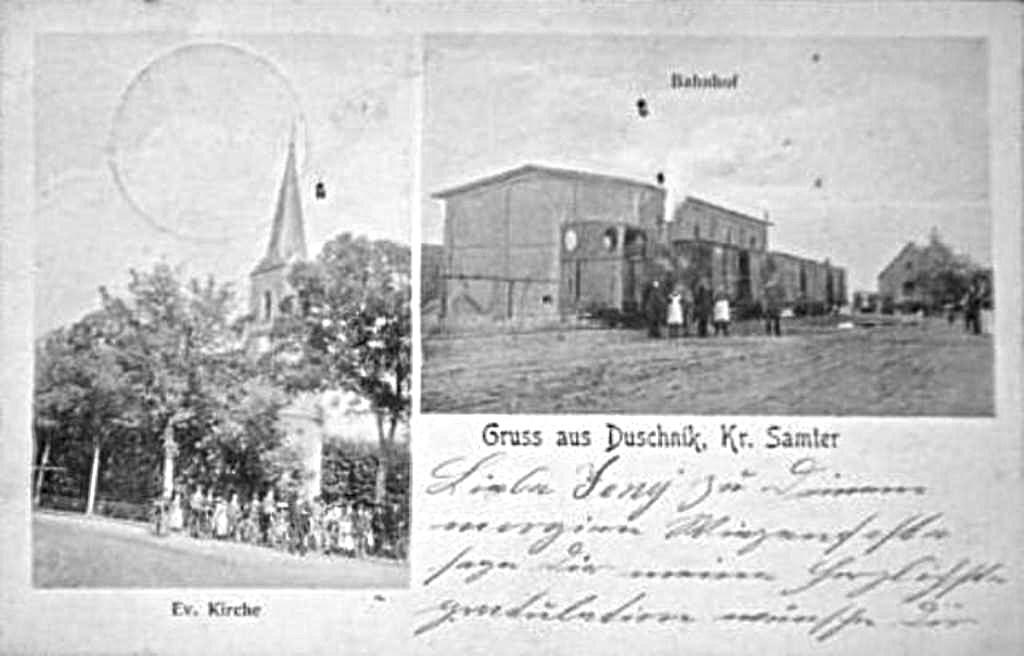 Bahnhof
Ev. Kirche
Gruss aus Duschnik, Kr. Samter
Liebe Jeny zu Deinem
morgigen
sage Dir meine Herzlichste
gratulation wünsche Dir